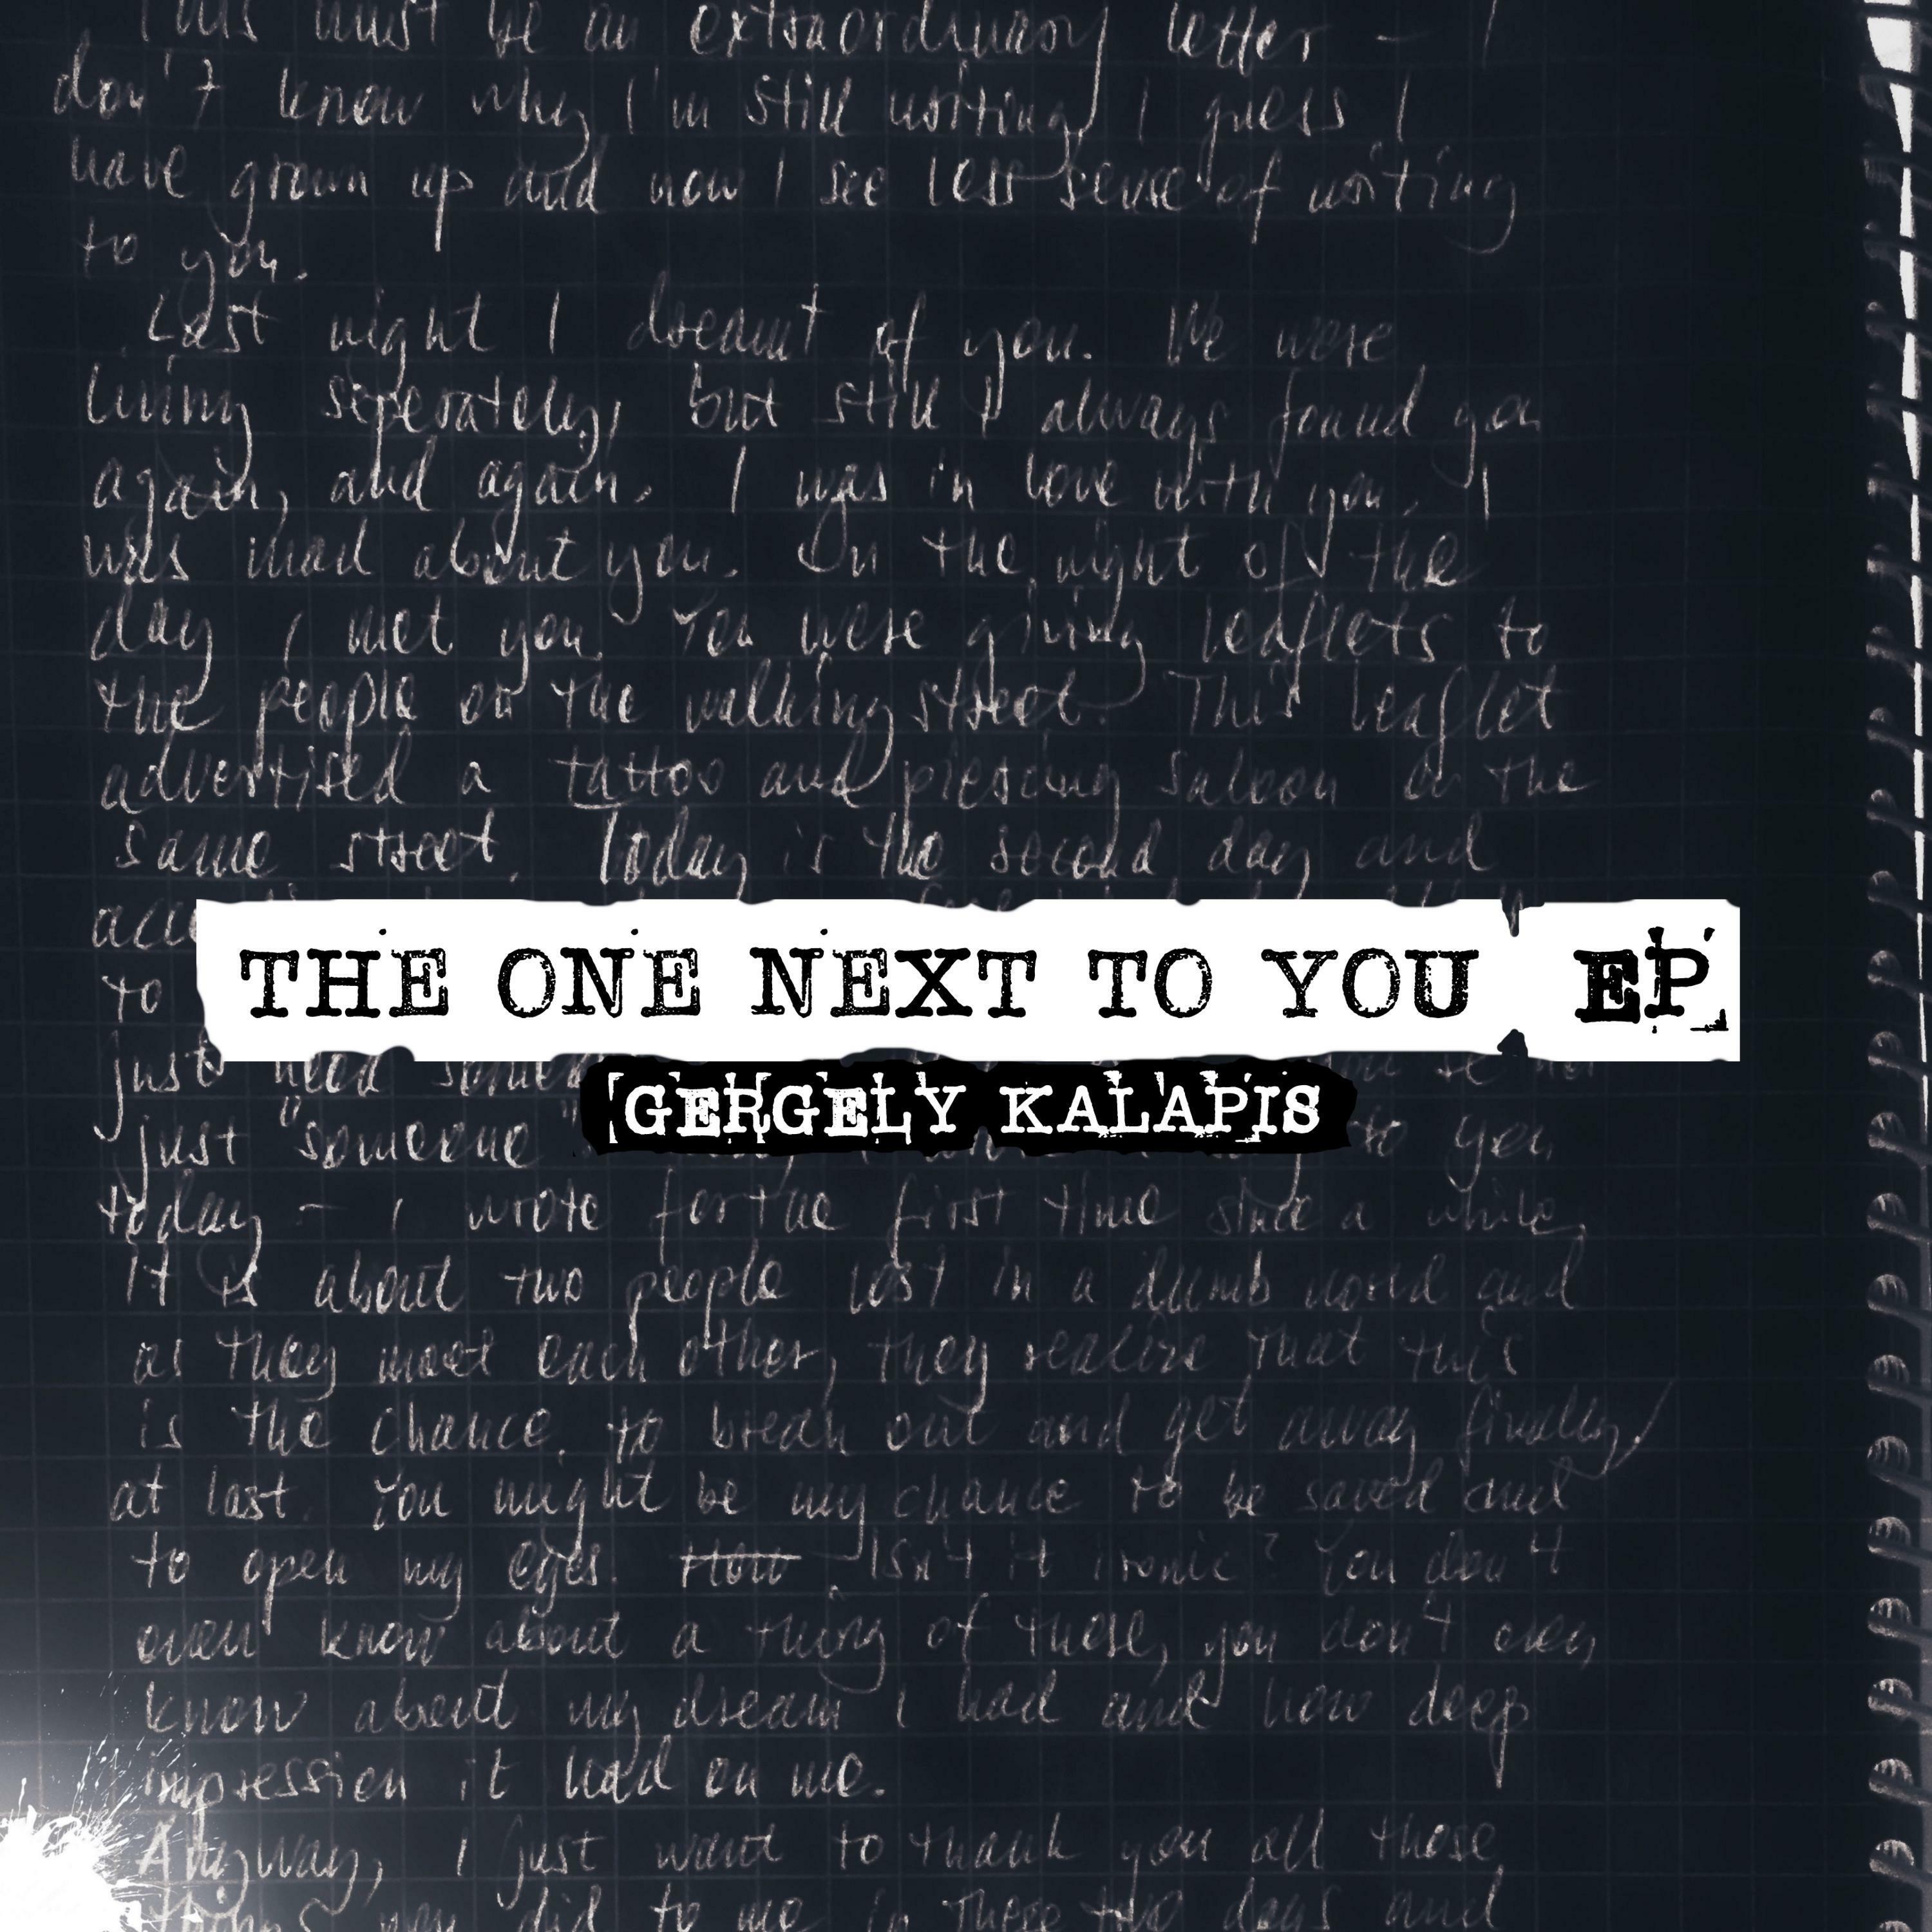 This must be an extraordinary letter - I
don't know why I'm still writing, I guess I
have grown up and now I see less sense of writing
to you.
Last night I dreamt of you. We were
living seperately, but still I always found you
again, and again. I was in love with you, I
was mad about you. On the night of the
day I met you. You were giving leaflets to
the people on the walking street. This leaflet
advertised a tattoo and piercing saloon on the
same street. Today is the second day and
to
THE ONE NEXT TO YOU EP
just need
GERGELY KALAPIS
just "someone" to you
today - I wrote for the first time since a while,
it is about two people lost in a dumb world and
as they meet each other, they realize that this
is the chance to break out and get away finally,
at last. You might be my chance to be saved and
to open my eyes. How Isn't it ironic? You don't
even know about a thing of these, you don't even
know about my dream I had and how deep
impression it had on me.
Anyway, I just want to thank you all those
you did to me in these two days and